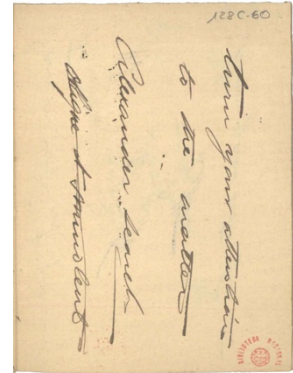 128C-60
turn your attention
to the matter
Alexander Search
BIBLIOTECA NACIONAL